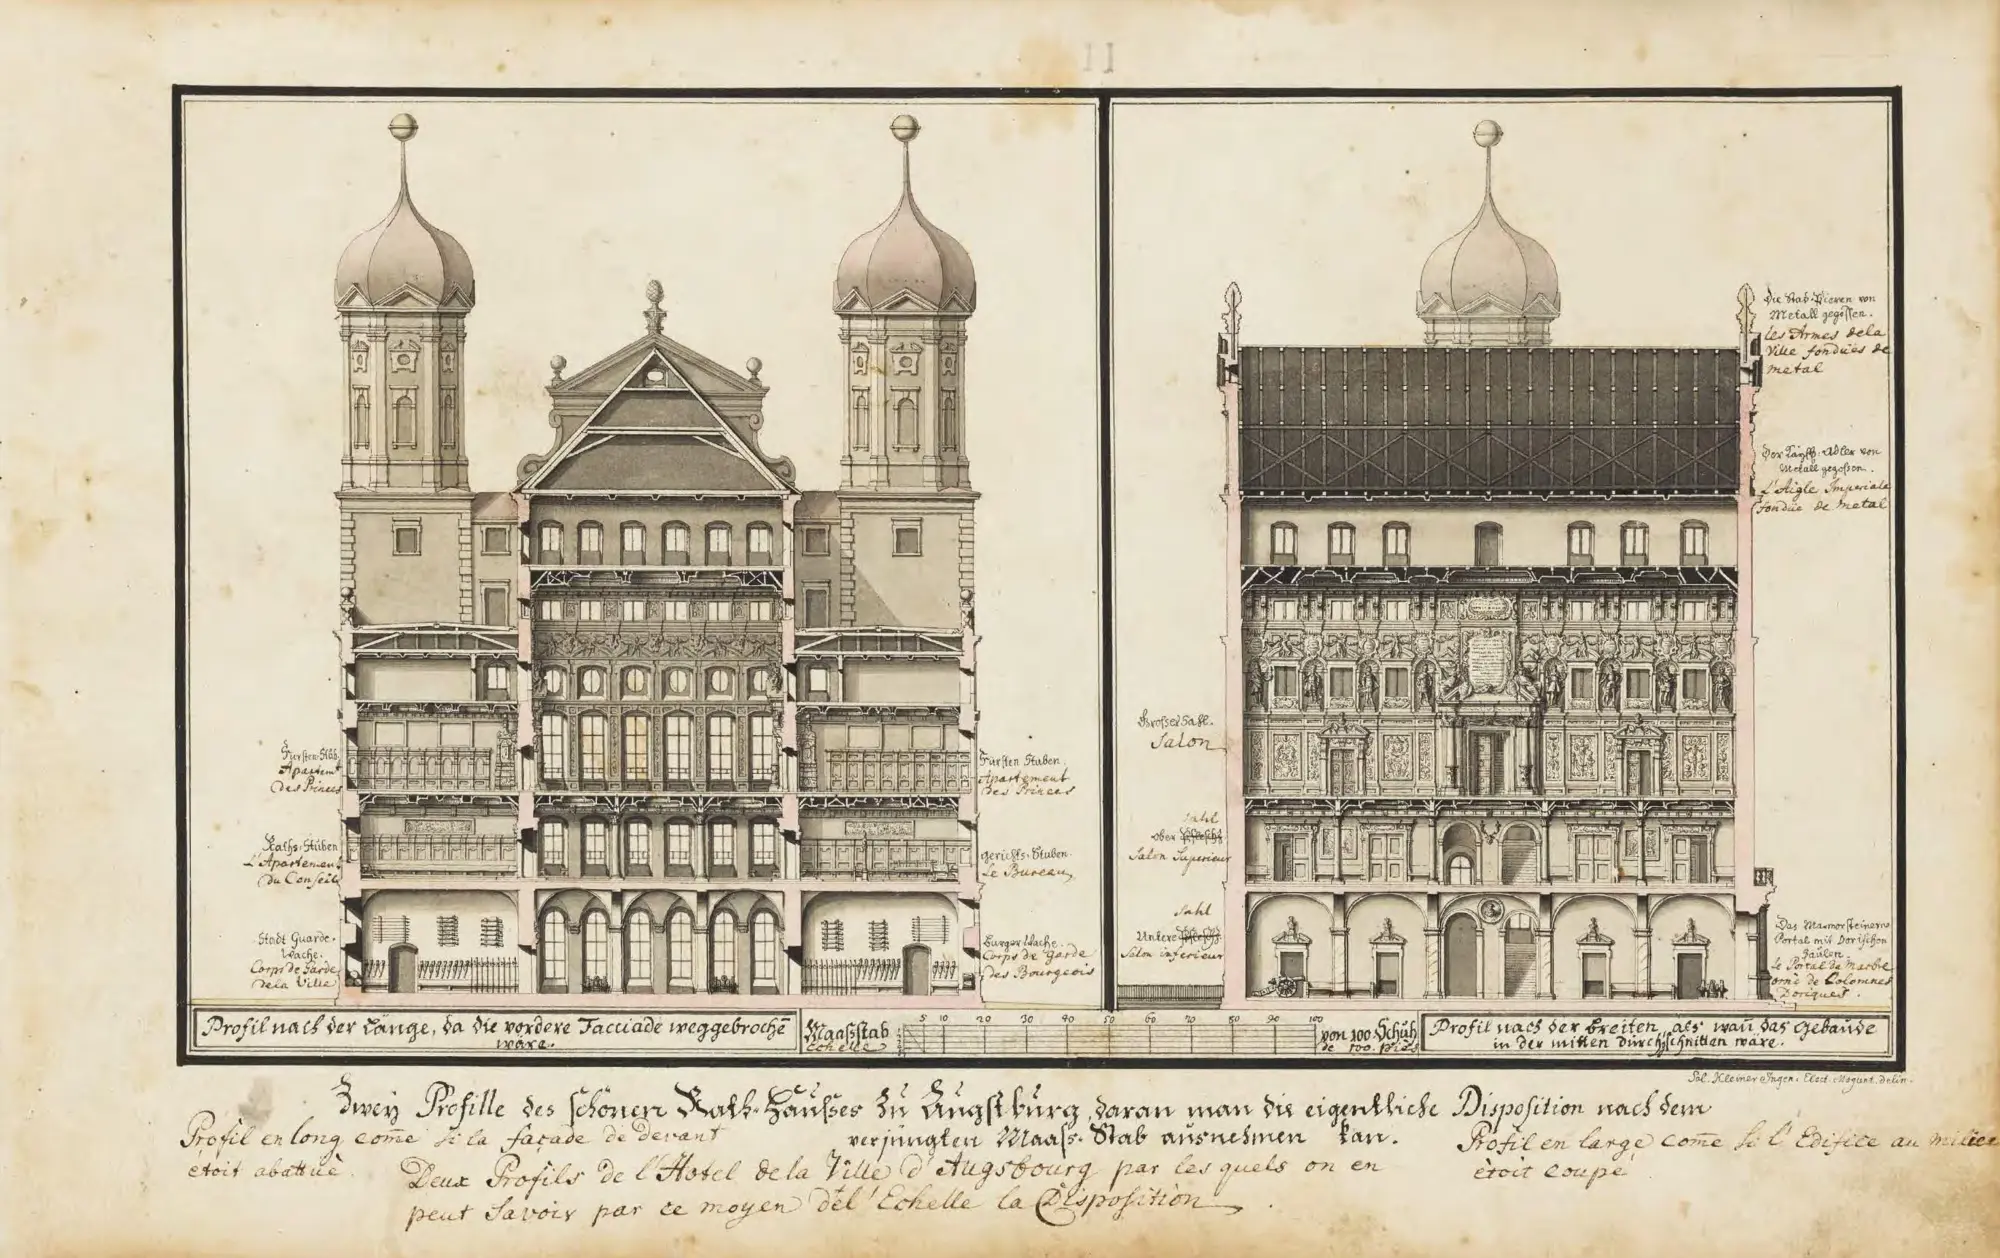 11
Die Stab-Pieren von
Metall gegossen.
les Armes dela
Ville fondües de
metal
Der Kaÿß. Adler von
Metall gegossen.
L'Aigle Imperiale
fondüe de metal
Fürsten-Stub.
Apartemt
des Princes
Fürsten Stuben.
Apartement
des Princes
Raths-Stuben
L'Apartement
du Conseil
gerichts-Stuben.
Le Bureau
Stadt Guarde-
Wache.
Corps de Garde
dela Ville
Burger Wache.
Corps de Garde
des Bourgeois
Grosser Sahl.
Salon
Sahl
Ober
Salon Superieur
Sahl
Untere
Salon inferieur
Das Marmorsteinerne
Portal mit Dorischen
Säulen.
le Portal de Marbre
orné de Colomnes
Doriques.
Profil nach der Länge, da die vordere Facciade weggebrochē
wäre.
Maaßstab
Echelle
5 10 20 30 40 50 60 70 80 90 100
von 100 Schuh
de 100. pies
Profil nach der breiten, als wañ das Gebäude
in der mitten durchschnitten wäre.
Sal. Kleiner Ingen. Elect. Mogunt. delin.
Zwey Profille des schönen Rath-Haußes zu Augspurg, daran man die eigentliche Disposition nach dem
verjüngten Maas-Stab ausnehmen kan.
Profil en long com̄e si la façade de devant
étoit abattuë.
Deux Profils de l'Hotel de la Ville d'Augsbourg par les quels on en
peut savoir par ce moyen del'Echelle la Disposition.
Profil en large com̄e si l'Edifice au milieu
étoit coupé